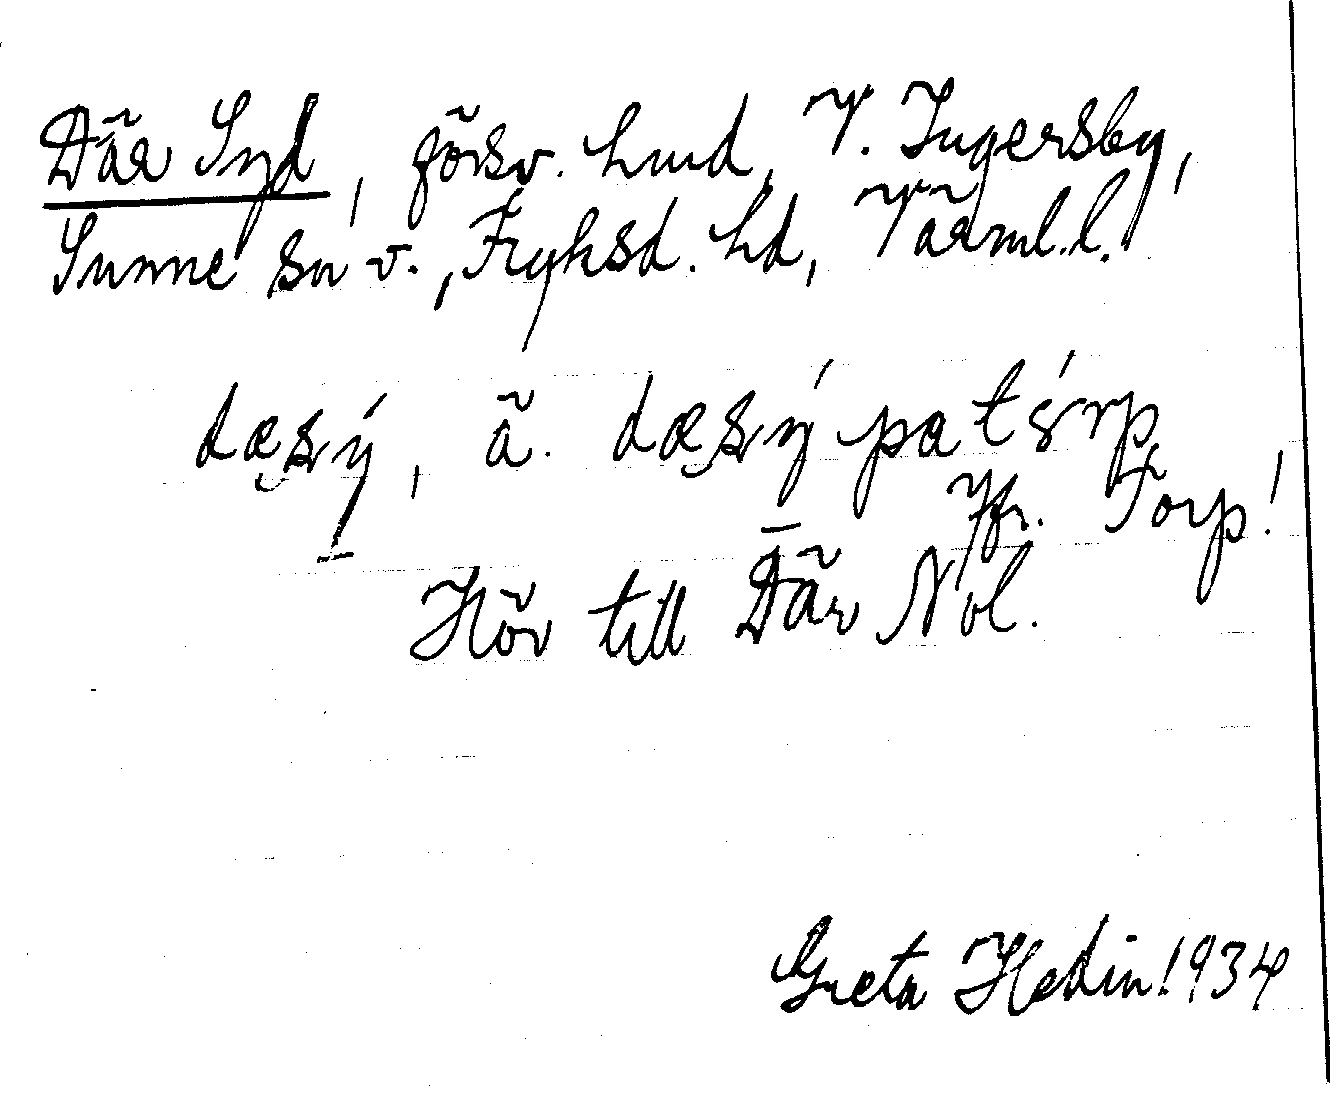 Där Syd, försv. hmd, V. Ingersby,
Sunne sn v., Fryksd. hd, Värml. l.
dæsý, ä. dæsý pa tórp
Jfr. Torp!
Hör till Där Nol.
Greta Hedin 1934